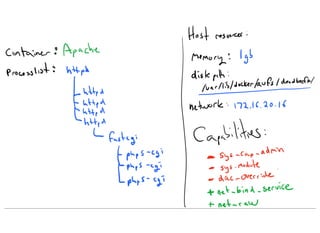 Container: Apache
Processlist: httpd
httpd
httpd
httpd
httpd
fastcgi
php5-cgi
php5-cgi
php5-cgi
Host resources:
memory: 1gb
disk ptn:
/var/lib/docker/aufs/deadbeef/
network: 172.16.20.16
Capabilities:
- sys_cap_admin
- sys_module
- dac_override
+ net_bind_service
+ net_raw